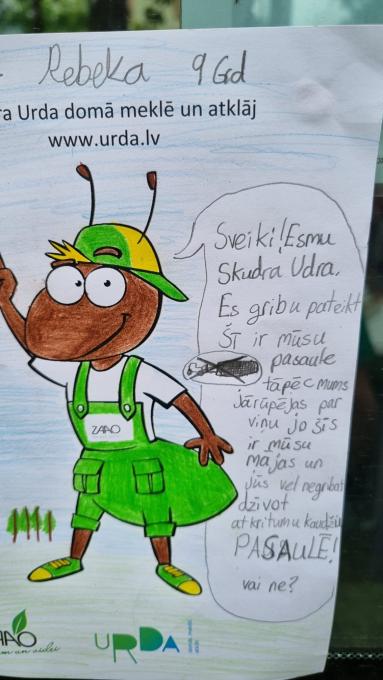 Rebeka 9 Grd
ra Urda domā meklē un atklāj
www.urda.lv
Sveiki! Esmu
Skudra Udra.
Es gribu pateikt
Šī ir mūsu
pasaule
tāpēc mums
Jārūpējas par
viņu jo šīs
ir mūsu
mājas un
jūs vel negribat
dzīvot
atkritumu kaudžu
PASAULĒ!
vai ne?
ZAAO
URDA